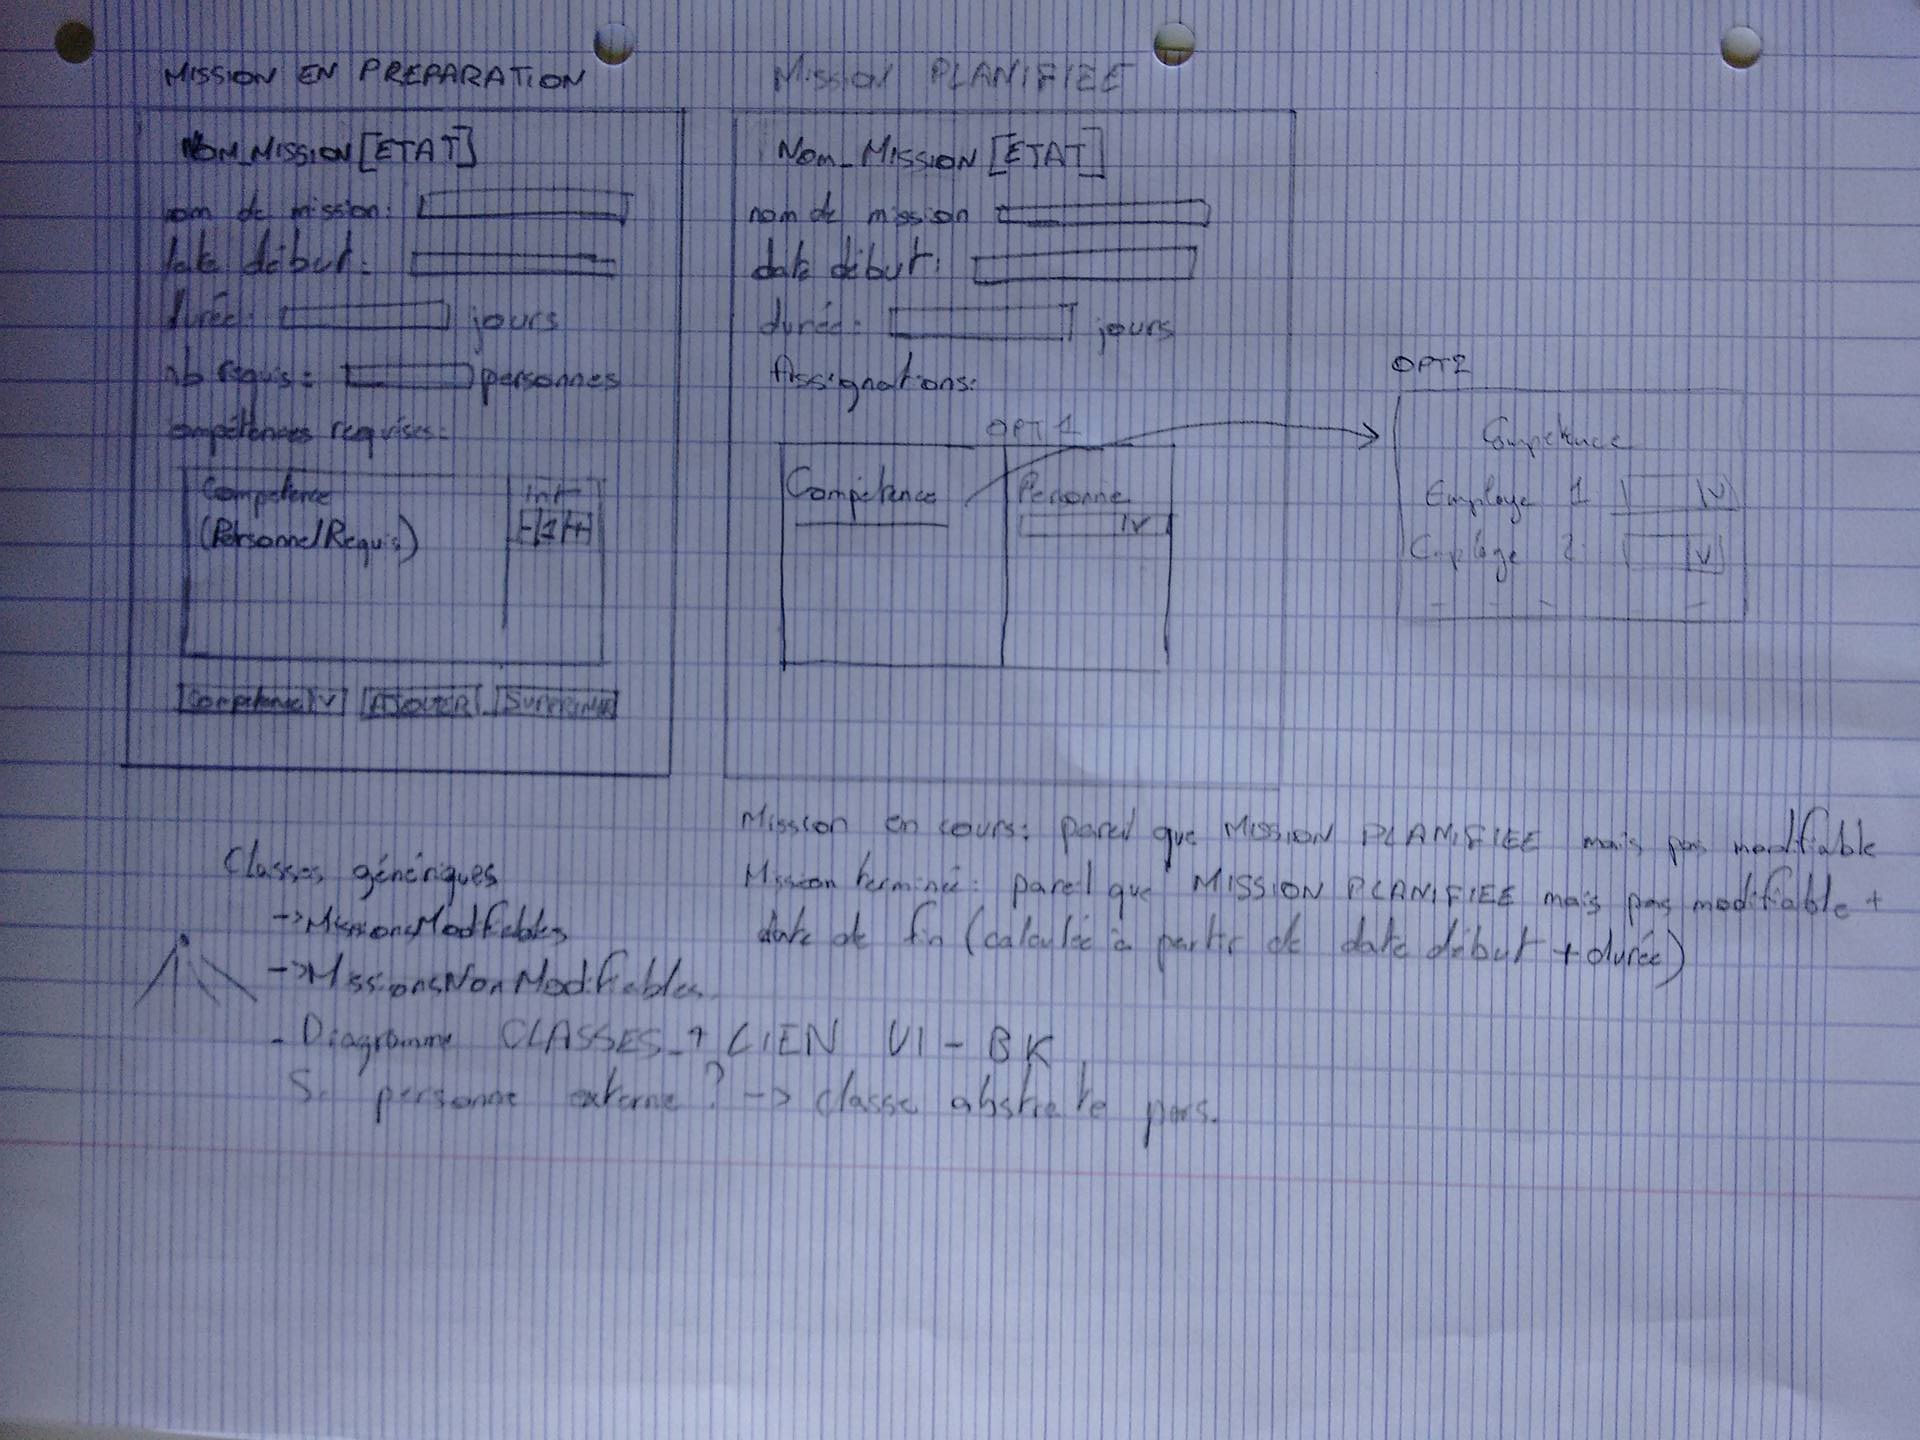 MISSION EN PREPARATION
NOM_MISSION [ETAT]
nom de mission:
date début:
durée: jours
nb requis: personnes
compétences requises:
Compétence
(Personnel Requis)
Int
- 1 +
Compétence V AJOUTER SUPPRIMER
Mission PLANIFIEE
Nom_Mission [ETAT]
nom de mission
date début:
durée: jours
Assignations:
OPT 1
Compétence Personne
V
OPT2
Compétence
Employe 1 V
Employe 2: V
Mission en cours: pareil que MISSION PLANIFIEE mais pas modifiable
Mission terminée: pareil que MISSION PLANIFIEE mais pas modifiable +
date de fin (calculée à partir de date début + durée)
Classes génériques
->MissionsModifiables
->MissionsNonModifiables.
- Diagramme CLASSES + LIEN UI - BK
Si personne externe? -> classe abstraite pers.